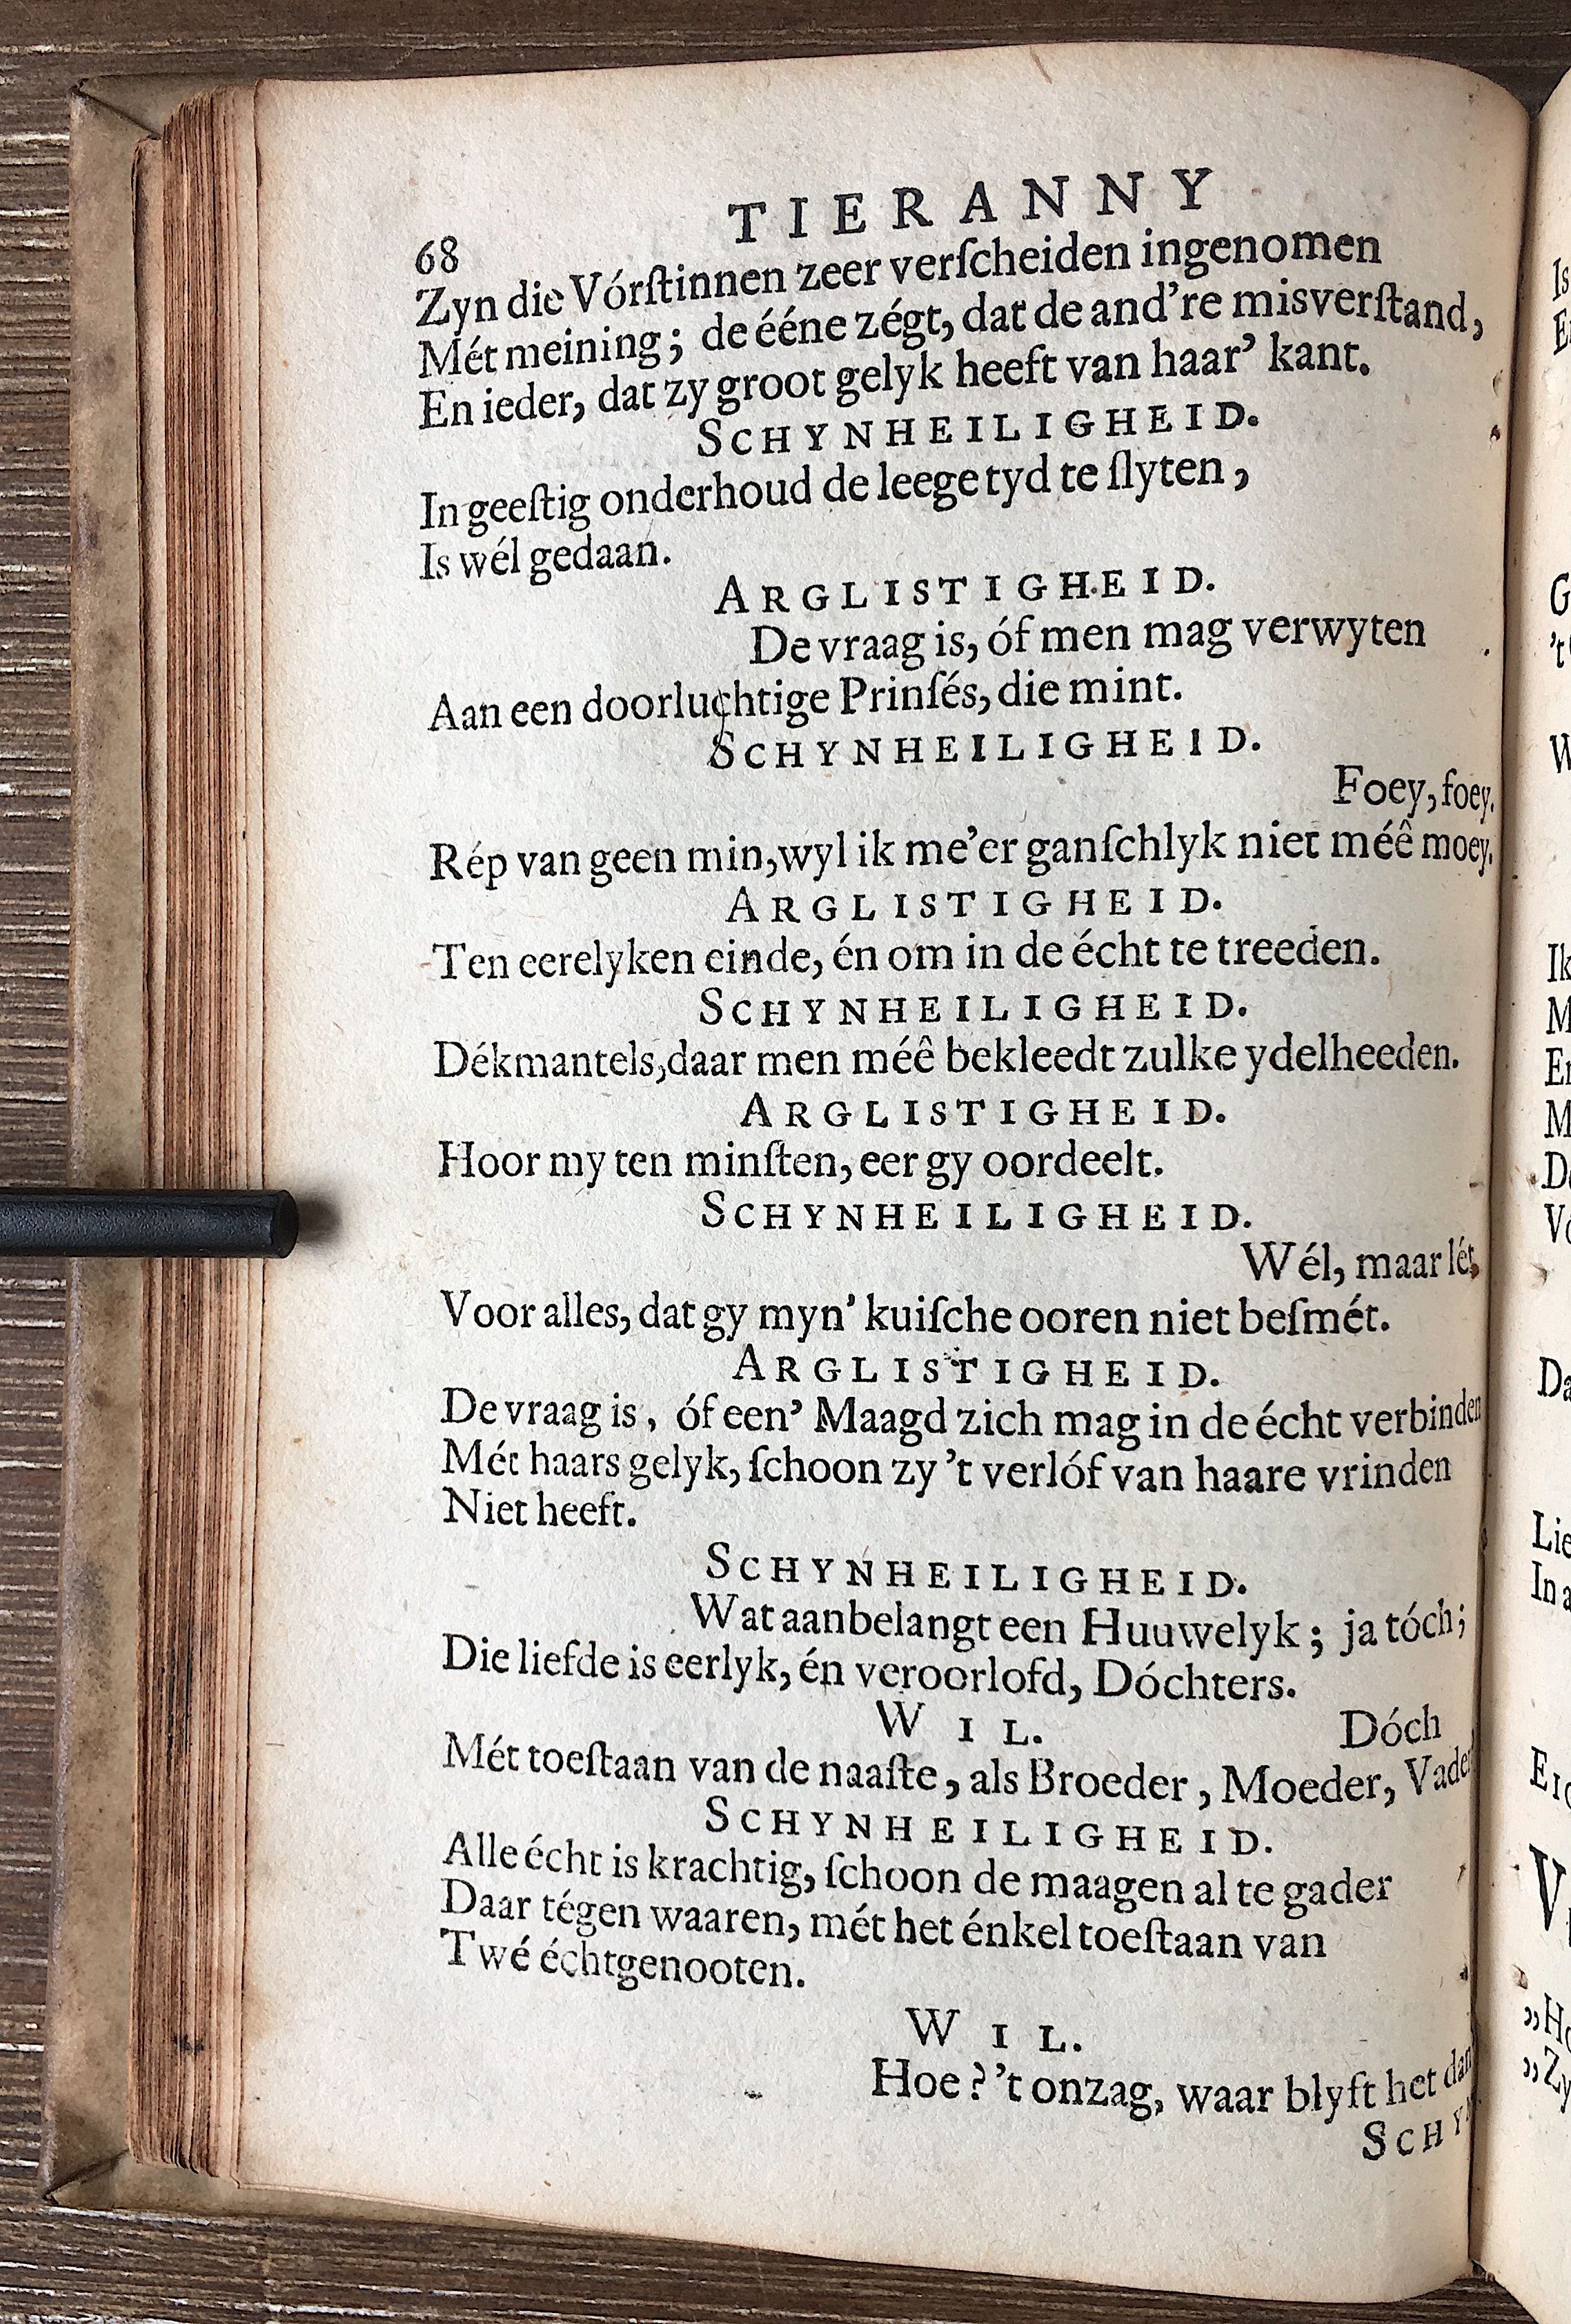 68 TIERANNY
Zyn die Vórſtinnen zeer verſcheiden ingenomen
Mét meining; de ééne zégt, dat de and're misverſtand,
En ieder, dat zy groot gelyk heeft van haar' kant.
SCHYNHEILIGHEID.
In geeſtig onderhoud de leege tyd te ſlyten,
Is wél gedaan.
ARGLISTIGHEID.
De vraag is, óf men mag verwyten
Aan een doorluchtige Prinſés, die mint.
SCHYNHEILIGHEID.
Foey, foey.
Rép van geen min, wyl ik me'er ganſchlyk niet méê moey.
ARGLISTIGHEID.
Ten eerelyken einde, én om in de écht te treeden.
SCHYNHEILIGHEID.
Dékmantels, daar men méê bekleedt zulke ydelheeden.
ARGLISTIGHEID.
Hoor my ten minſten, eer gy oordeelt.
SCHYNHEILIGHEID.
Wél, maar lét,
Voor alles, dat gy myn' kuiſche ooren niet beſmét.
ARGLISTIGHEID.
De vraag is, óf een' Maagd zich mag in de écht verbinden
Mét haars gelyk, ſchoon zy 't verlóf van haare vrinden
Niet heeft.
SCHYNHEILIGHEID.
Wat aanbelangt een Huuwelyk; ja tóch;
Die liefde is eerlyk, én veroorlofd, Dóchters.
WIL. Dóch
Mét toeſtaan van de naaſte, als Broeder, Moeder, Vader
SCHYNHEILIGHEID.
Alle écht is krachtig, ſchoon de maagen al te gader
Daar tégen waaren, mét het énkel toeſtaan van
Twé échtgenooten.
WIL.
Hoe? 't onzag, waar blyft het dan
SCHY
Is
G
't
W
Ik
M
M
Da
Lie
In a
V